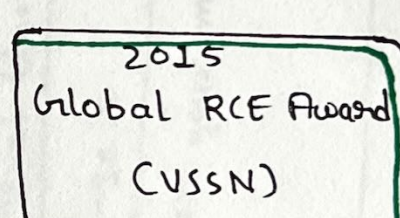 2015
Global RCE Award
(VSSN)